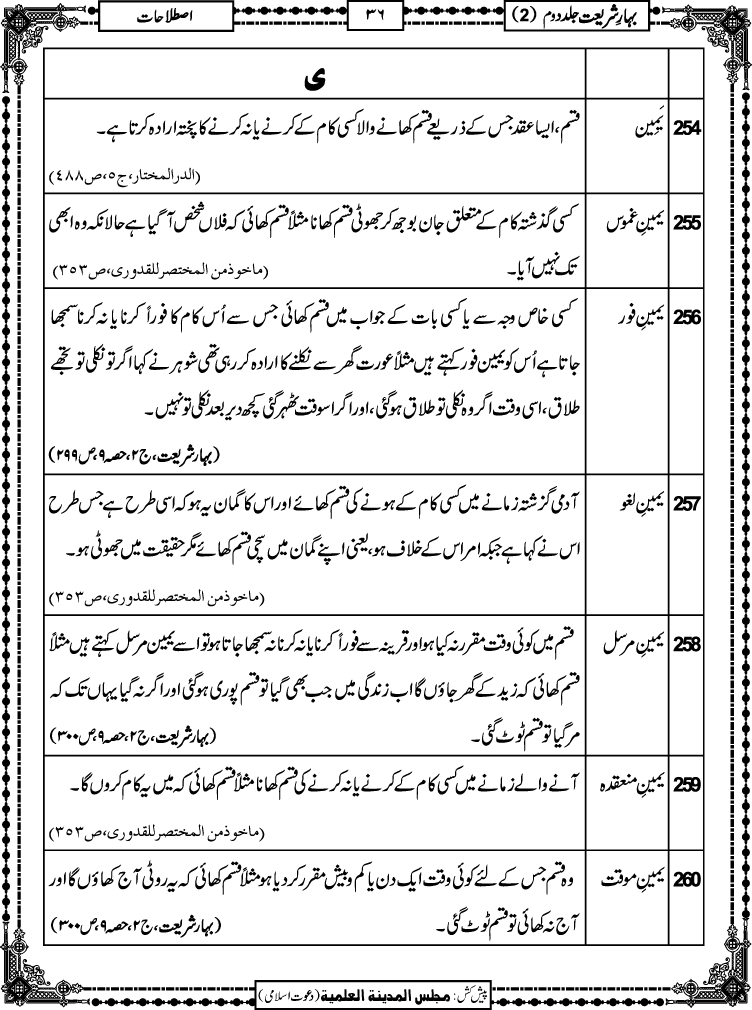 بہارِ شریعت جلد دوم (2)
۳۶
اصطلاحات
ی
254 یَمِین قسم، ایسا عقد جس کے ذریعے قسم کھانے والا کسی کام کے کرنے یا نہ کرنے کا پختہ ارادہ کرتا ہے۔
(الدرالمختار،ج٥،ص٤٨٨)
255 یمینِ غموس کسی گذشتہ کام کے متعلق جان بوجھ کر جھوٹی قسم کھانا مثلاً قسم کھائی کہ فلاں شخص آگیا ہے حالانکہ وہ ابھی
تک نہیں آیا۔ (ماخوذمن المختصرللقدوری،ص٣٥٣)
256 یمینِ فور کسی خاص وجہ سے یا کسی بات کے جواب میں قسم کھائی جس سے اُس کام کا فوراً کرنا یا نہ کرنا سمجھا
جاتا ہے اُس کو یمین فور کہتے ہیں مثلاً عورت گھر سے نکلنے کا ارادہ کر رہی تھی شوہر نے کہا اگر تو نکلی تو تجھے
طلاق، اسی وقت اگر وہ نکلی تو طلاق ہوگئی، اور اگر اسوقت ٹھہر گئی کچھ دیر بعد نکلی تو نہیں۔
(بہارشریعت، ج۲، حصہ۹، ص۲۹۹)
257 یمینِ لغو آدمی گزشتہ زمانے میں کسی کام کے ہونے کی قسم کھائے اور اس کا گمان یہ ہو کہ اسی طرح ہے جس طرح
اس نے کہا ہے جبکہ امر اس کے خلاف ہو، یعنی اپنے گمان میں سچی قسم کھائے مگر حقیقت میں جھوٹی ہو۔
(ماخوذمن المختصرللقدوری،ص٣٥٣)
258 یمینِ مرسل قسم میں کوئی وقت مقرر نہ کیا ہو اور قرینہ سے فوراً کرنا یا نہ کرنا نہ سمجھا جاتا ہو تو اسے یمین مرسل کہتے ہیں مثلاً
قسم کھائی کہ زید کے گھر جاؤں گا اب زندگی میں جب بھی گیا تو قسم پوری ہوگئی اور اگر نہ گیا یہاں تک کہ
مر گیا تو قسم ٹوٹ گئی۔ (بہارشریعت، ج۲، حصہ۹، ص۳۰۰)
259 یمینِ منعقدہ آنے والے زمانے میں کسی کام کے کرنے یا نہ کرنے کی قسم کھانا مثلاً قسم کھائی کہ میں یہ کام کروں گا۔
(ماخوذمن المختصرللقدوری،ص٣٥٣)
260 یمینِ موقت وہ قسم جس کے لئے کوئی وقت ایک دن یا کم و بیش مقرر کر دیا ہو مثلاً قسم کھائی کہ یہ روٹی آج کھاؤں گا اور
آج نہ کھائی تو قسم ٹوٹ گئی۔ (بہارشریعت، ج۲، حصہ۹، ص۳۰۰)
پیش کش: مجلس المدينة العلمية (دعوت اسلامی)